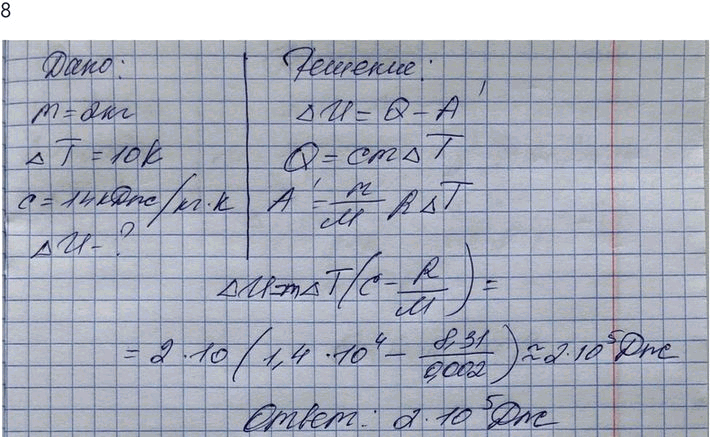 8
Дано:
m = 2кг
ΔT = 10K
c = 14кДж/кг·K
ΔU - ?
Решение:
ΔU = Q - A'
Q = cmΔT
A' = m/M RΔT
ΔU = mΔT(c - R/M) =
= 2·10(1,4·10⁴ - 8,31/0,002) ≈ 2·10⁵Дж
Ответ: 2·10⁵Дж